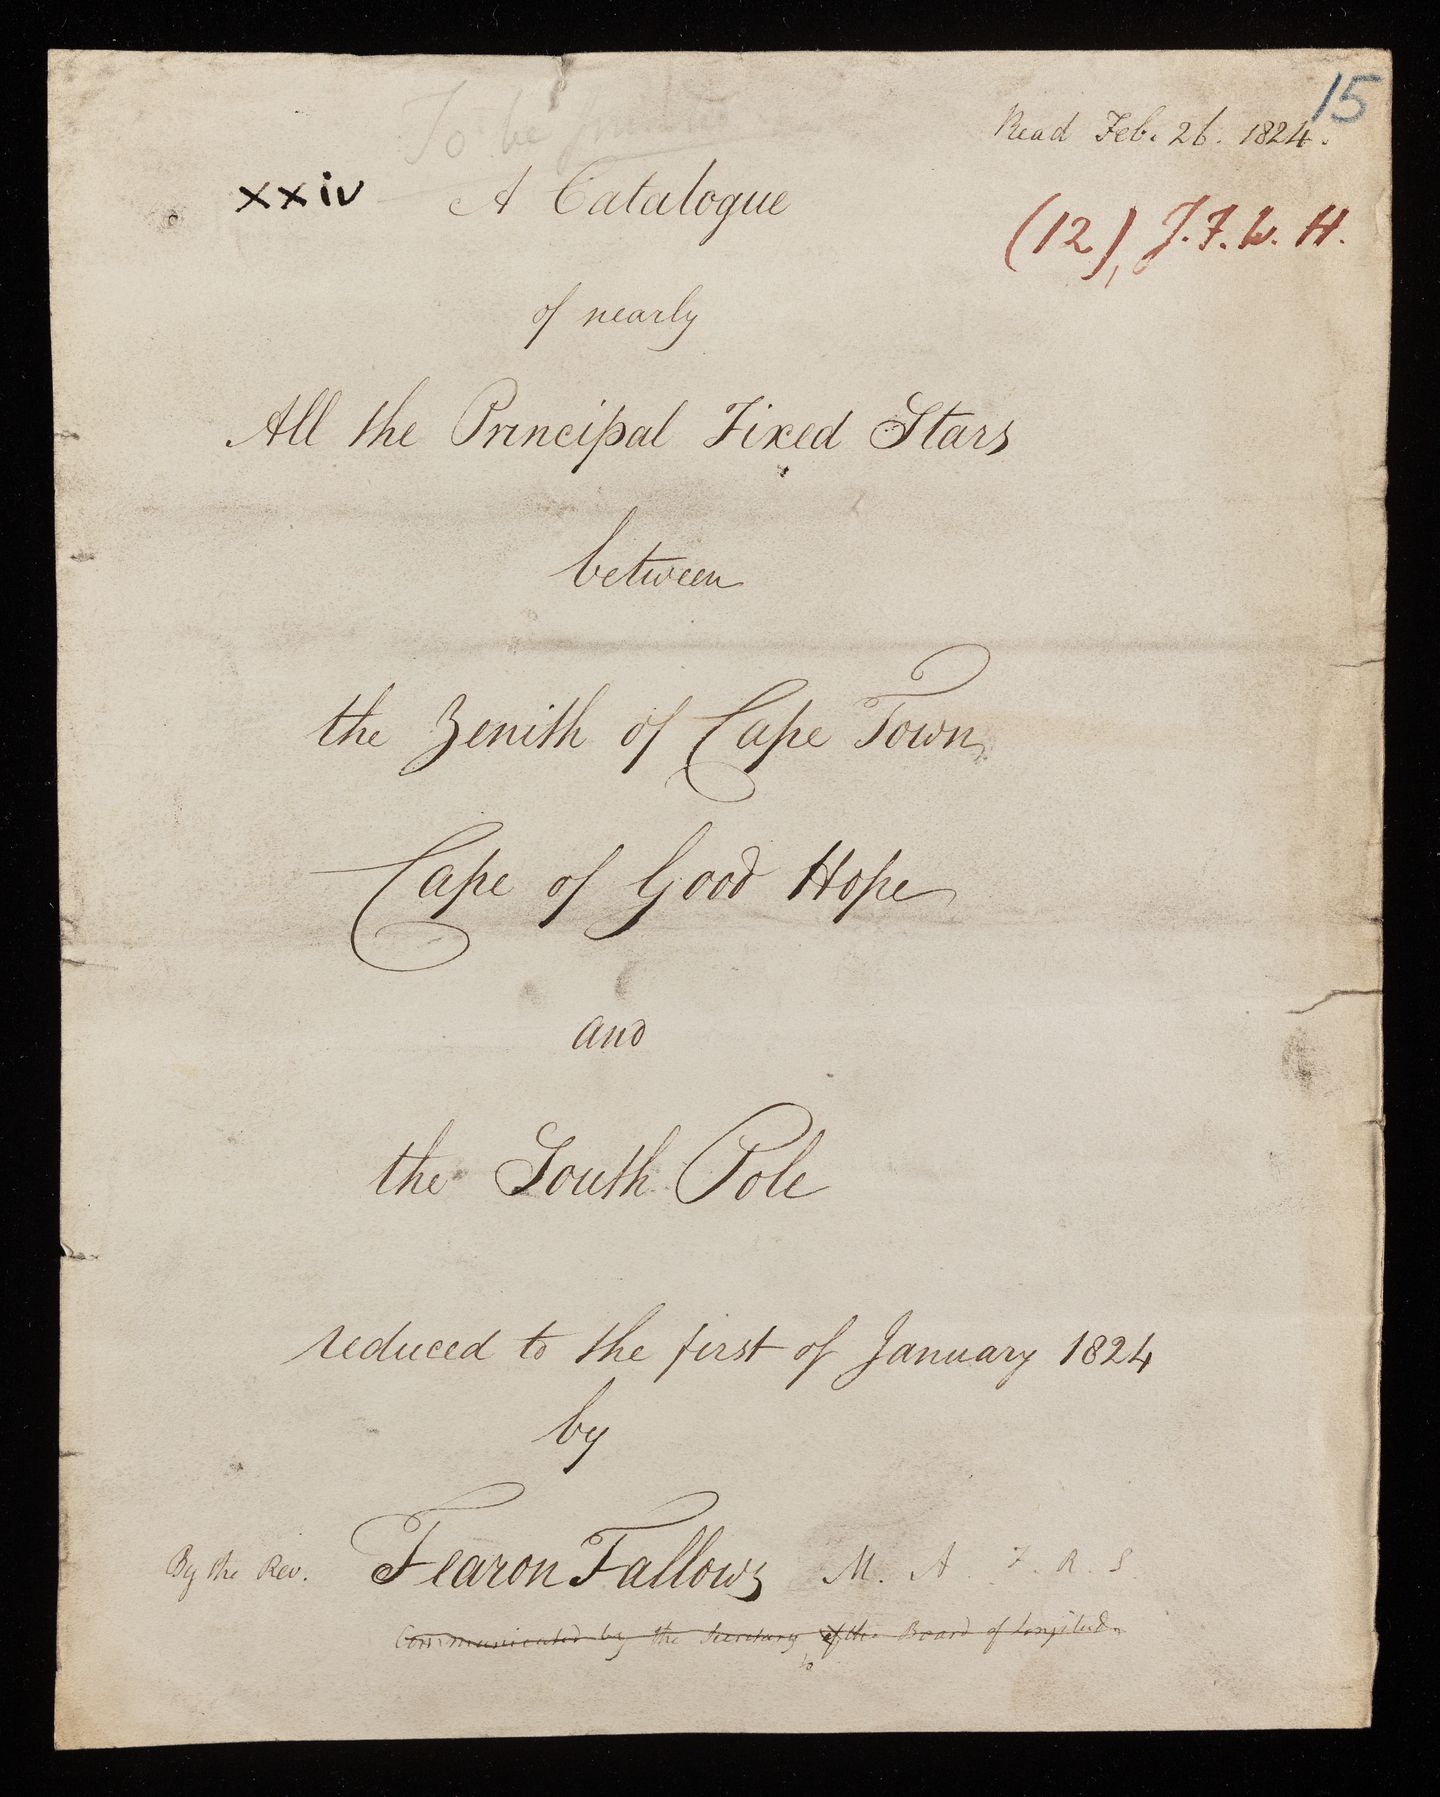 15
To be
Read Feb. 26. 1824.
xxiv A Catalogue
(12), J. F. W. H.
of nearly
All the Principal Fixed Stars
between
the Zenith of Cape Town
Cape of Good Hope
and
the South Pole
reduced to the first of January 1824
by
By the Rev. Fearon Fallows M. A. F. R. S.
Communicated by the Secretary of the Board of Longitude
to